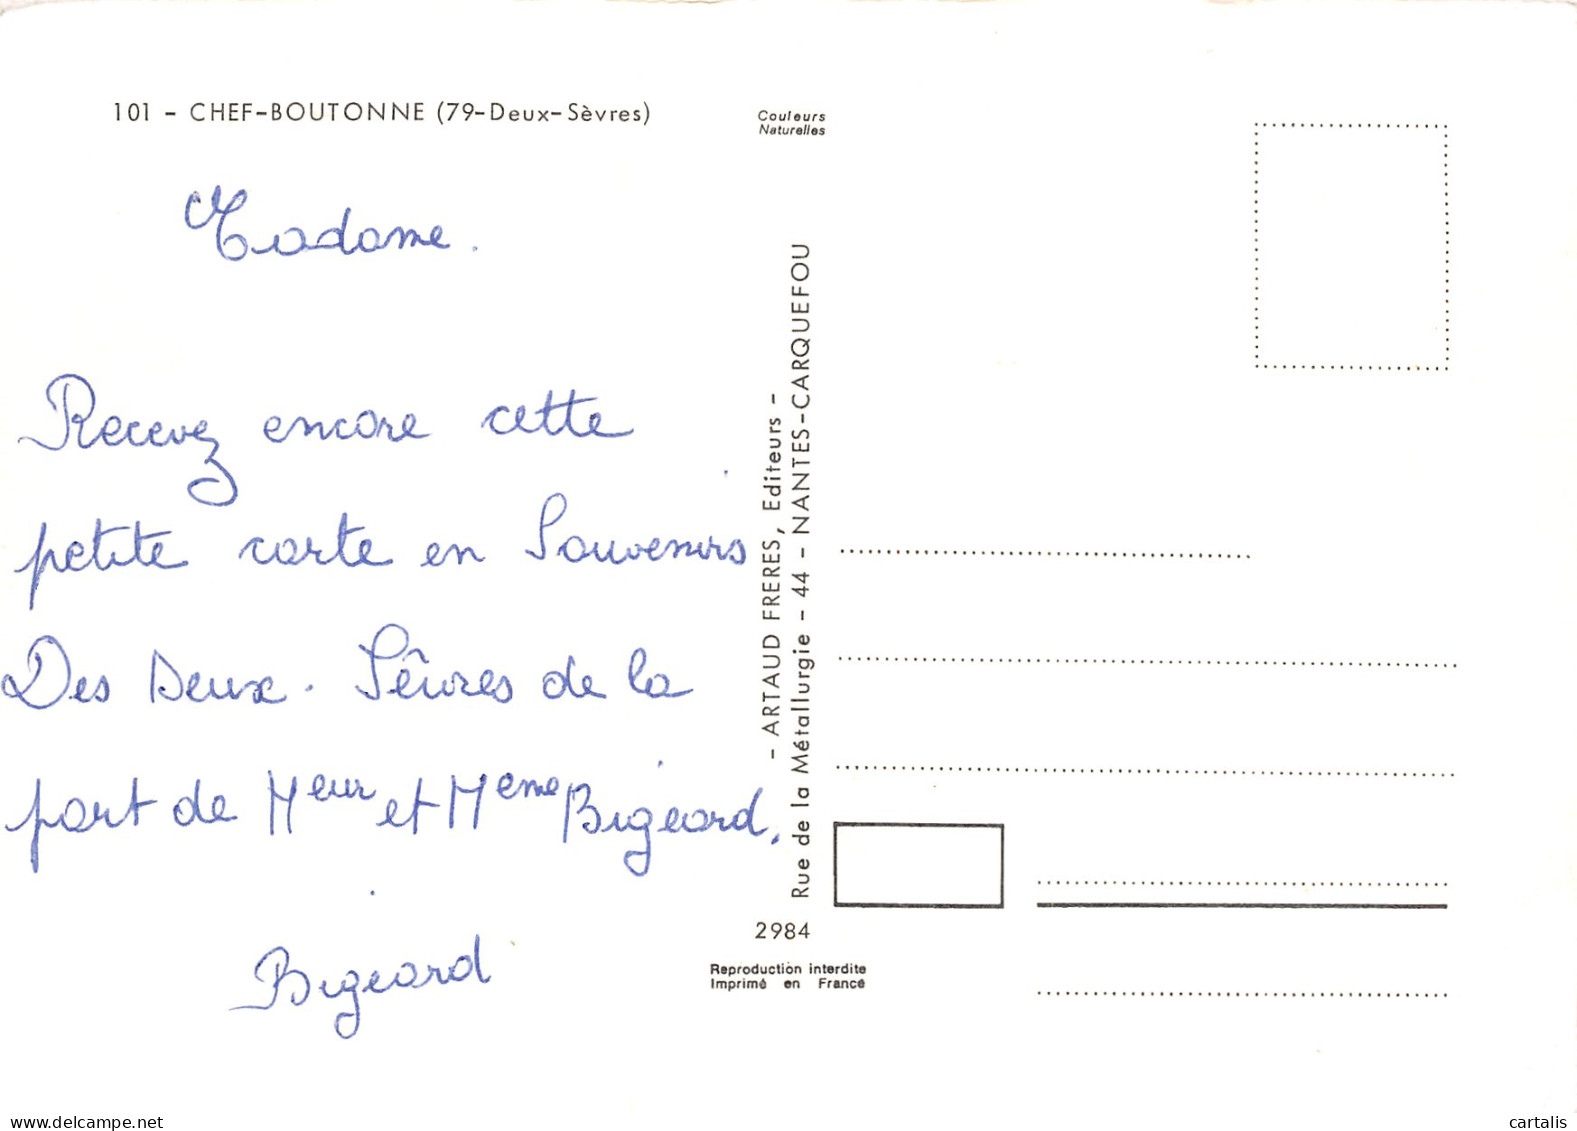 101 - CHEF-BOUTONNE (79-Deux-Sèvres)
Couleurs
Naturelles
Madame.
Recevez encore cette
petite carte en Souvenirs
Des Deux. Sêvres de la
part de Meur et Meme Bigeard,
Bigeard
- ARTAUD FRERES, Editeurs -
Rue de la Métallurgie - 44 - NANTES-CARQUEFOU
2984
Reproduction interdite
Imprimé en France
www.delcampe.net
cartalis